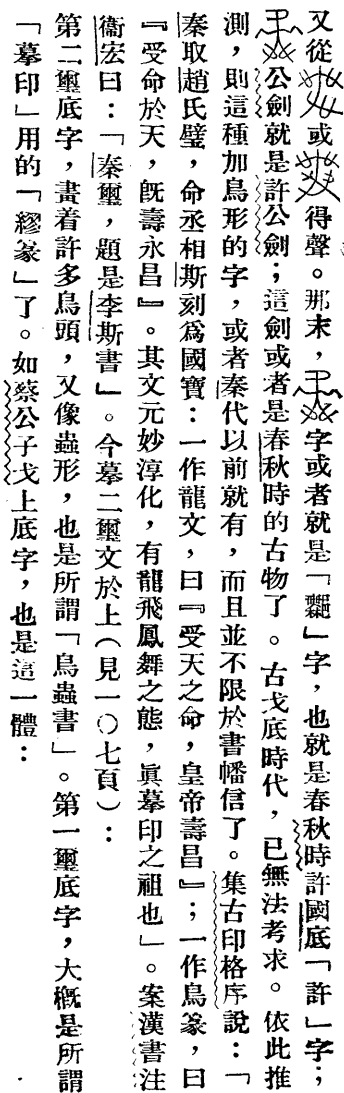 又從或得聲。那末，字或者就是「䵻」字，也就是春秋時許國底「許」字；
公劍就是許公劍；這劍或者是春秋時的古物了。古戈底時代，已無法考求。依此推
測，則這種加鳥形的字，或者秦代以前就有，而且並不限於書幡信了。集古印格序說：「
秦取趙氏璧，命丞相斯刻爲國寶：一作龍文，曰『受天之命，皇帝壽昌』；一作鳥篆，曰
『受命於天，旣壽永昌』。其文元妙淳化，有龍飛鳳舞之態，眞摹印之祖也」。案漢書注
衞宏曰：「秦璽，題是李斯書」。今摹二璽文於上（見一〇七頁）：
第二璽底字，畫着許多鳥頭，又像蟲形，也是所謂「鳥蟲書」。第一璽底字，大槪是所謂
「摹印」用的「繆篆」了。如蔡公子戈上底字，也是這一體：